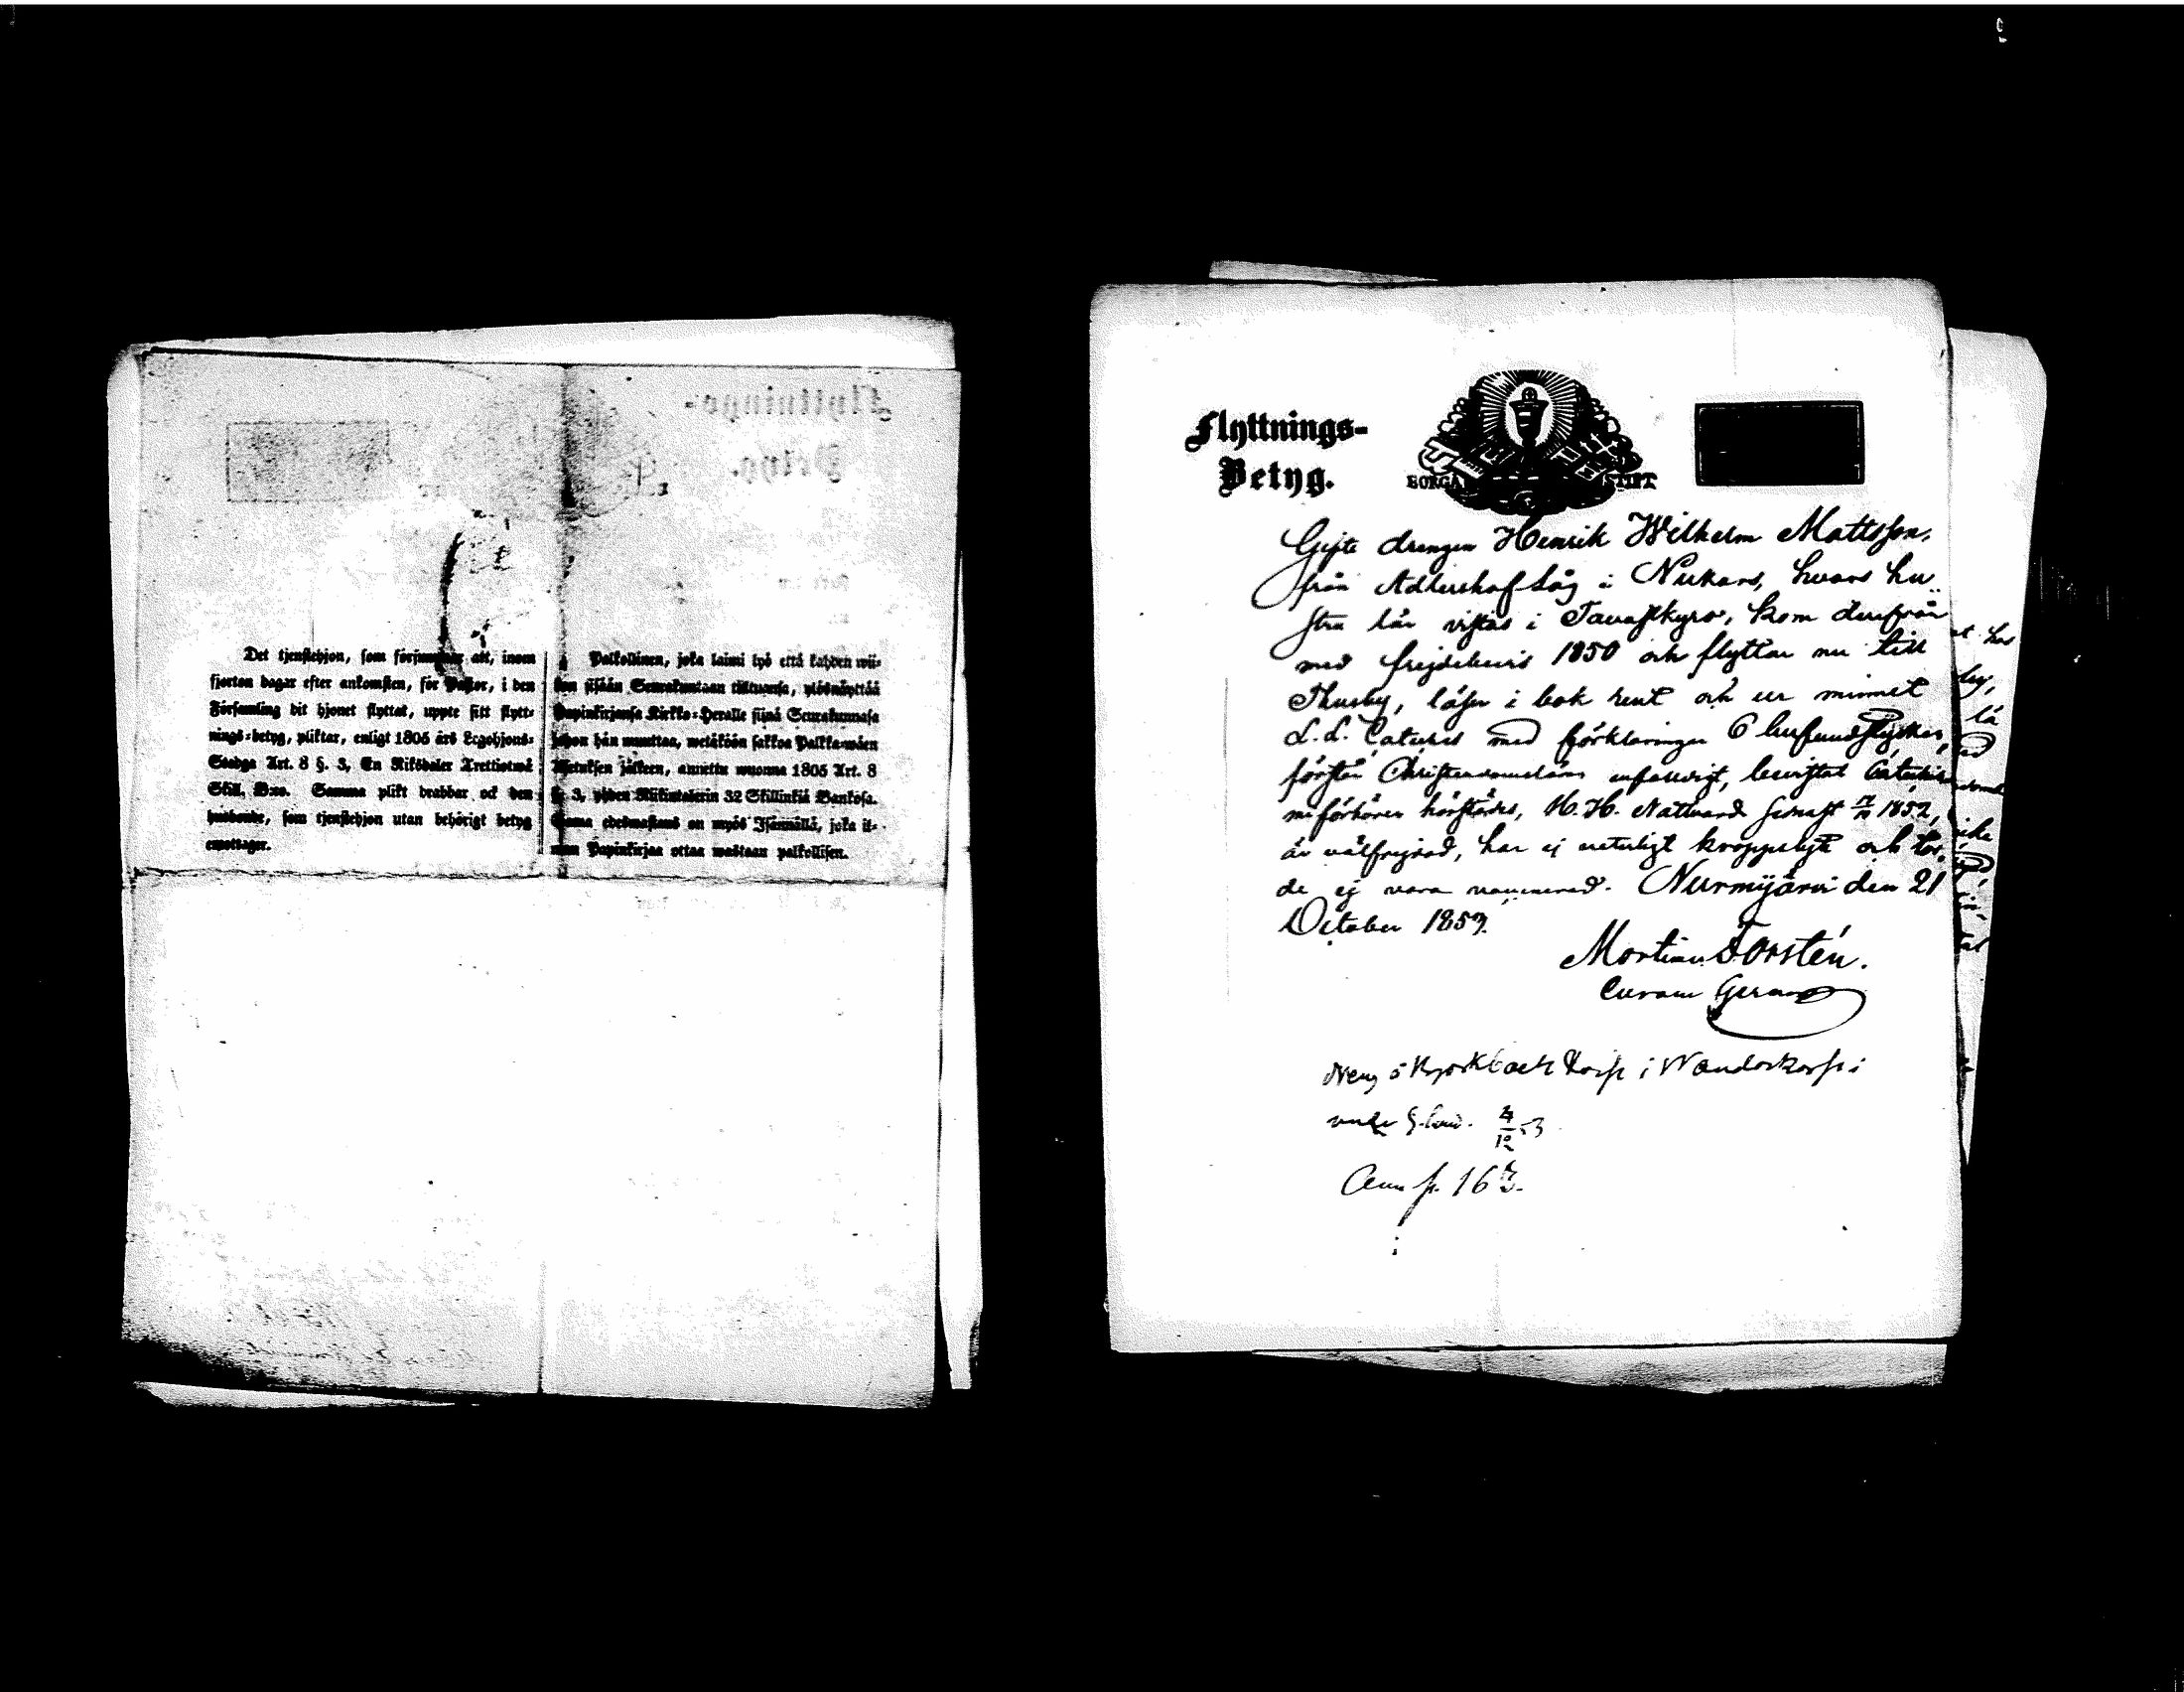 Det tjenstehjon, som försummar att, inom
fjorton dagar efter ankomsten, för Pastor, i den
Församling dit hjonet flyttat, uppte sitt flytt-
nings-betyg, pliktar, enligt 1805 års Legohjons-
Stadga Art. 8 §. 3, En Riksdaler Trettiotwå
Skill. B:co. Samma plikt drabbar ock den
husbonde, som tjenstehjon utan behörigt betyg
emottager.
Palkollinen, joka laimi lyö että kahden wii-
kon sisään Seurakuntaan tultuansa, ylösnäyttää
Papinkirjansa Kirkko-Herralle siinä Seurakunnasa
johon hän muuttaa, wetäköön sakkoa Palkka-wäen
Asetuksen jälkeen, annettu wuonna 1805 Art. 8
§. 3, yhden Riikintalerin 32 Skillinkiä Bankosa.
Sama edeswastaus on myös Isännällä, joka il-
man Papinkirjaa ottaa wastaan palkollisen.
Flyttnings-
Betyg.
BORGÅ STIFT
Gifte drengen Henrik Wilhelm Mattsson,
från Adlershof Såg i Nukars, hvars hu-
stru lär vistas i Tavastkyro, kom derifrån
med frejdebevis 1850 och flyttar nu till
Thusby, läser i bok rent och ur minnet
L. L. Cateches med förklaringen 6 hufvudstycken,
förstår Christendomsläran enfaldigt, bevistat Catechis-
miförhören härstädes, H. H. Nattvard 1852,
är välfrejdad, har ej veterligt kroppslyte och tor-
de ej vara vaccinerad. Nurmijärvi den 21
October 1853.
Martin Forstén.
Curam Gerens
i
53
p. 163.